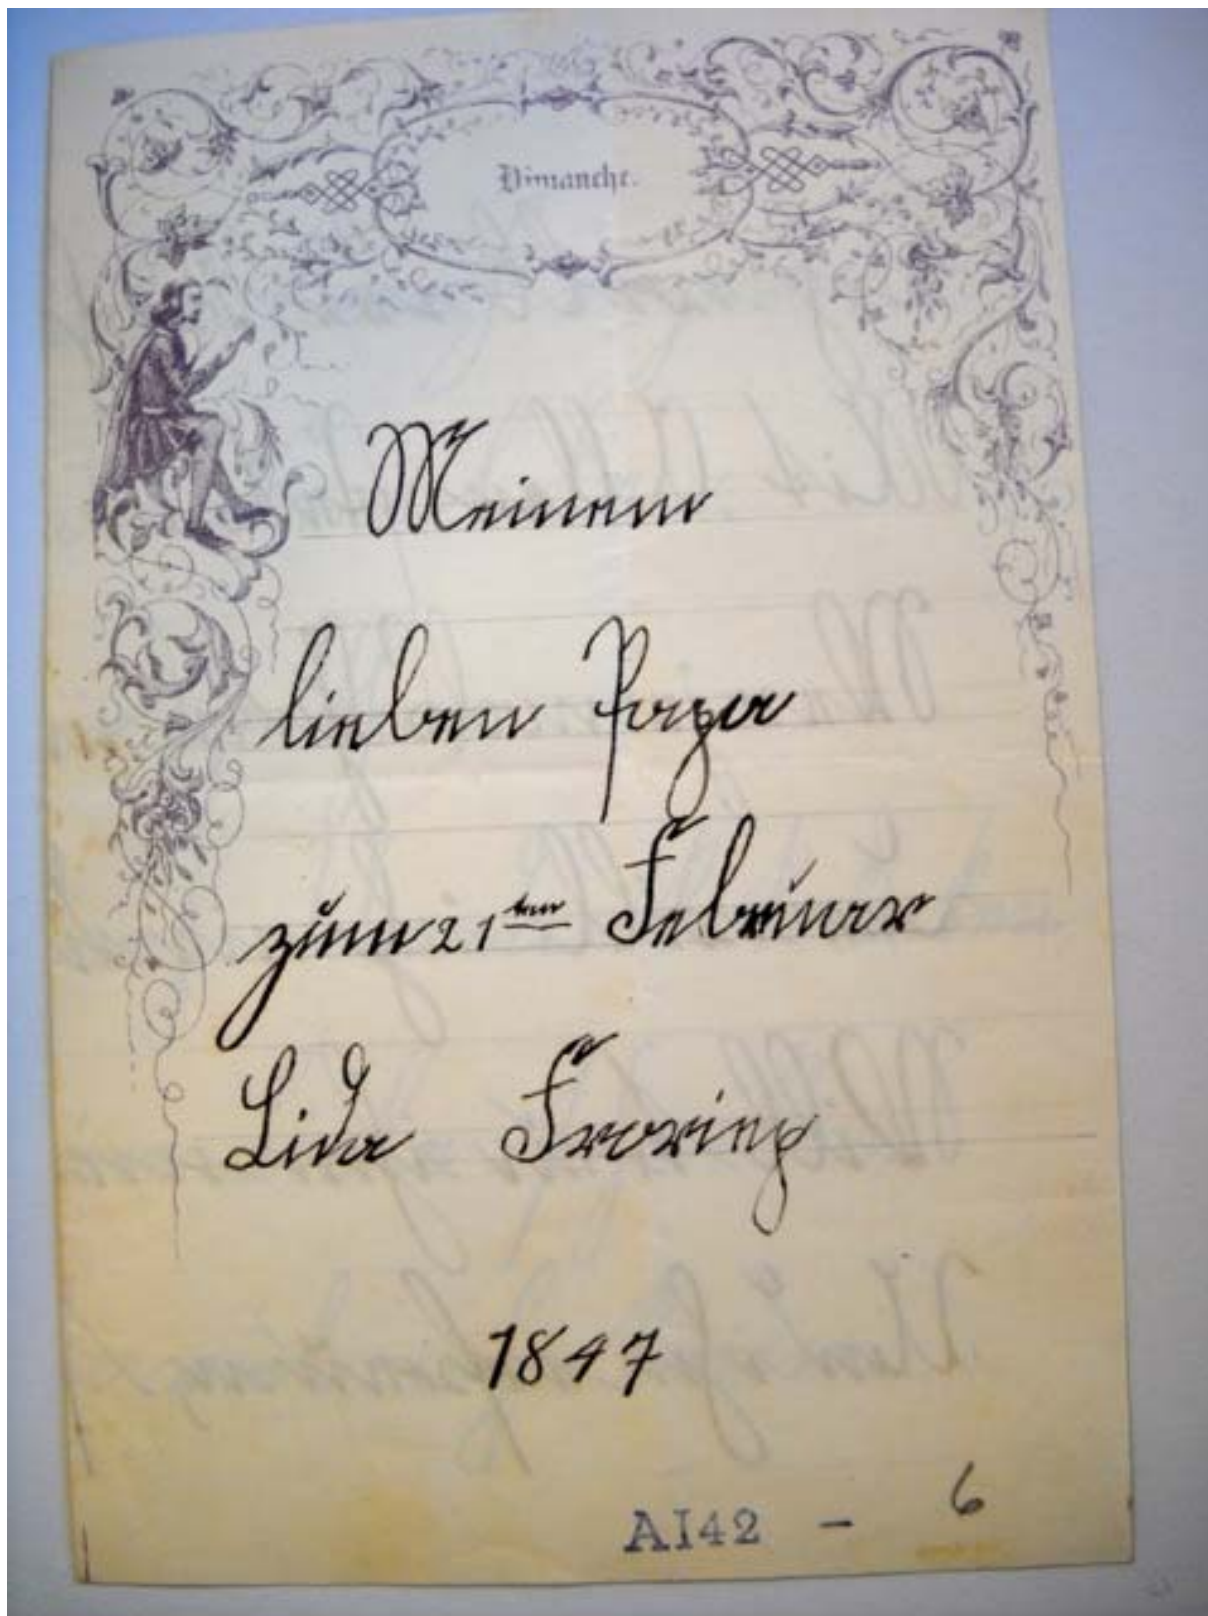 Dimanche.
Meinem
lieben Papa
zum 21ten Februar
Lida Froriep
1847
AI42 - 6